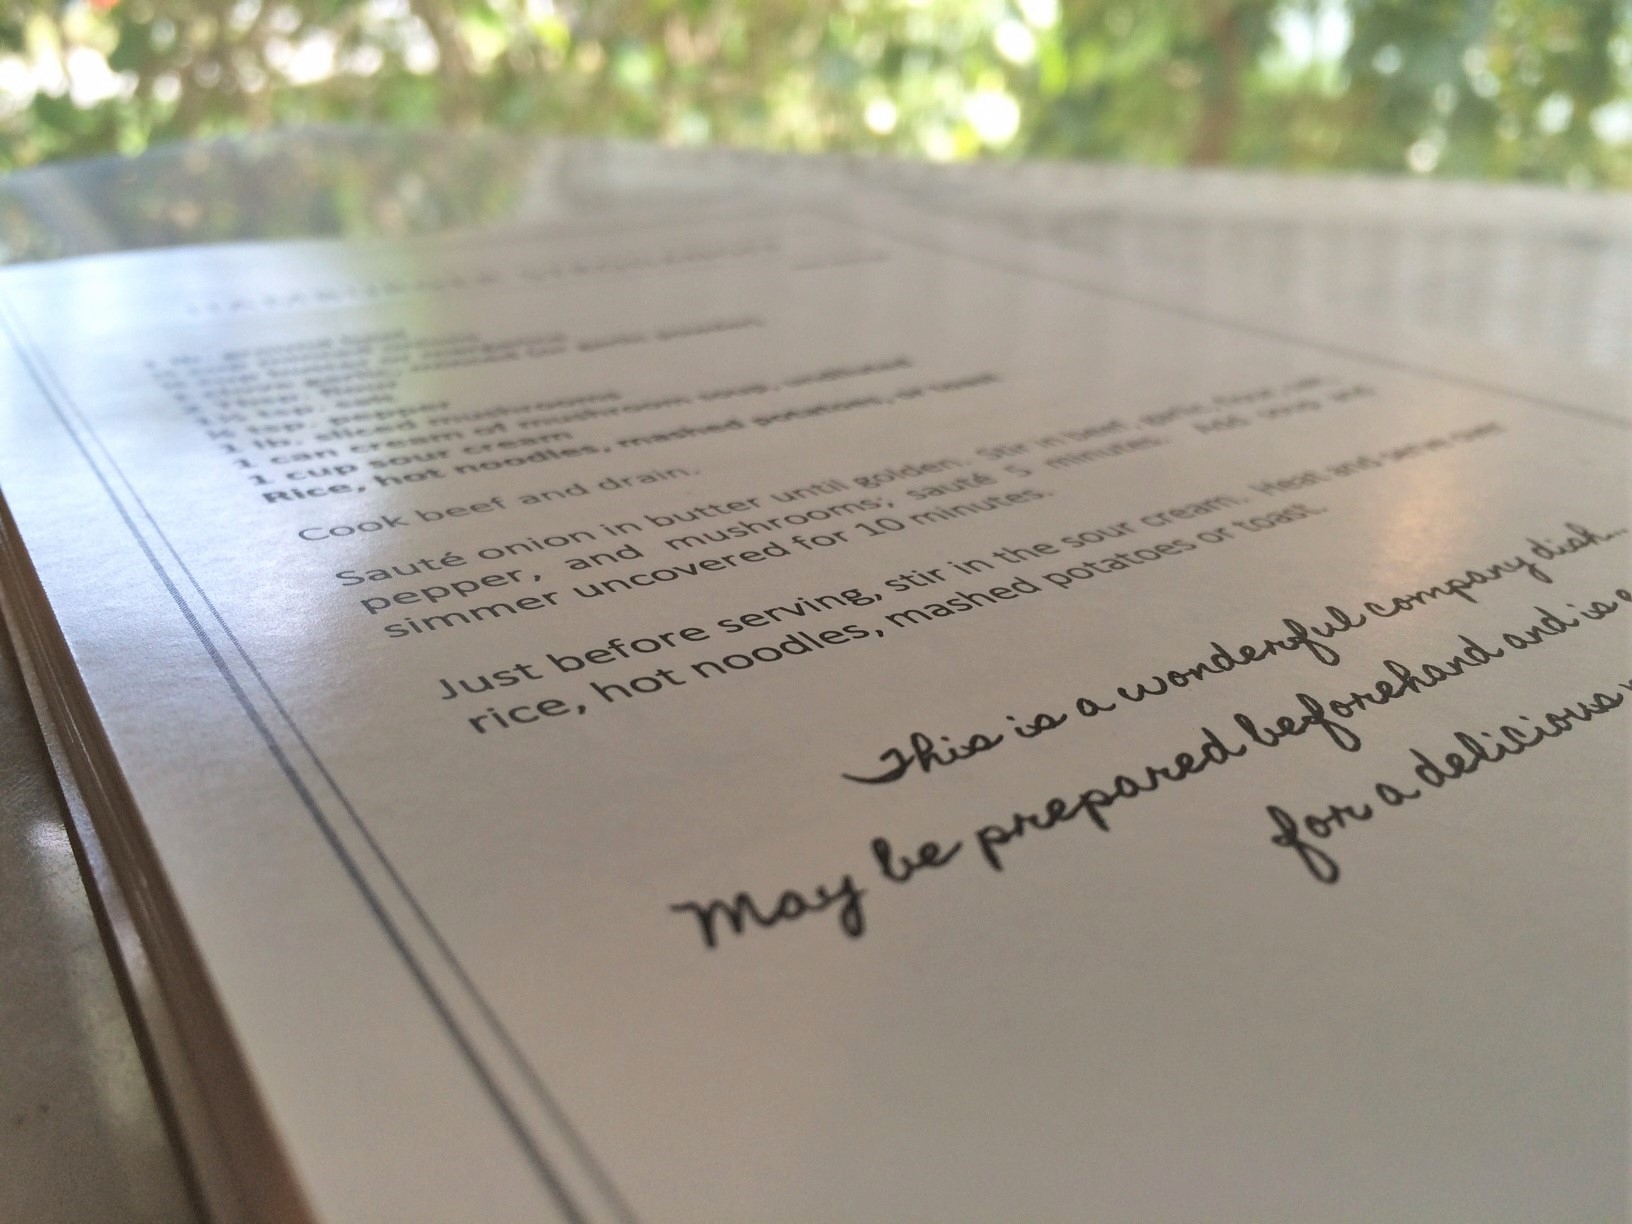 HAMBURGER STROGANOFF
1 lb. ground beef
minced (or garlic powder)
2 Tbsp. flour
1 tsp. salt
¼ tsp. pepper
1 lb. sliced mushrooms
1 can cream of mushroom soup, undiluted
1 cup sour cream
Rice, hot noodles, mashed potatoes, or toast
Cook beef and drain.
Sauté onion in butter until golden. Stir in beef, garlic, flour, salt,
pepper, and mushrooms; sauté 5 minutes. Add soup and
simmer uncovered for 10 minutes.
Just before serving, stir in the sour cream. Heat and serve over
rice, hot noodles, mashed potatoes or toast.
This is a wonderful company dish...
May be prepared beforehand and is
for a delicious